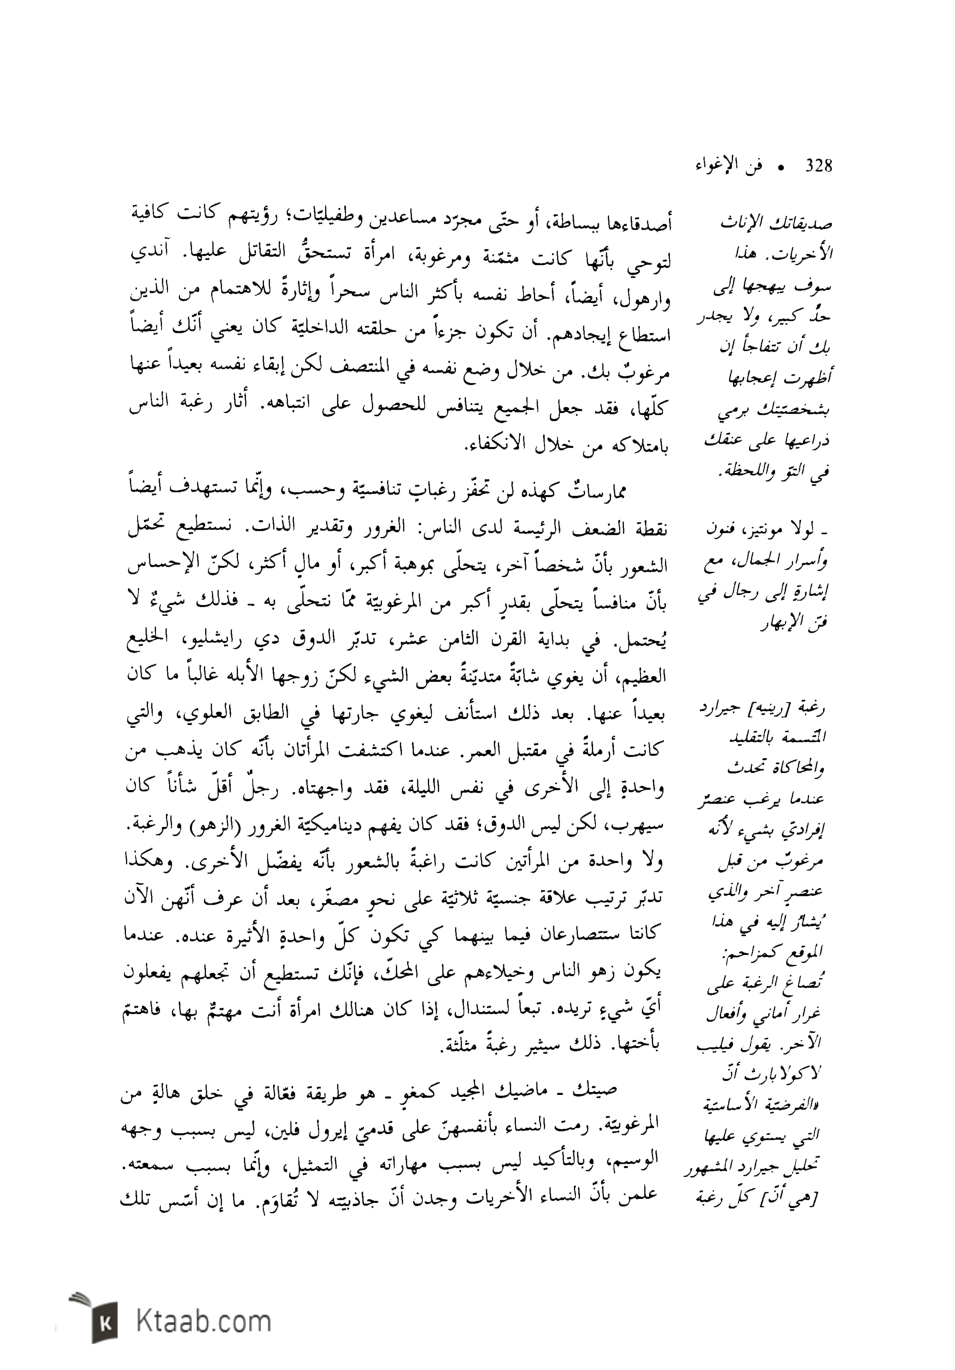 328 • فن الإغواء
صديقاتك الإناث
الأخريات. هذا
سوف يبهجها إلى
حدٍّ كبير، ولا يجدر
بك أن تتفاجأ إن
أظهرت إعجابها
بشخصيّتك برمي
ذراعيها على عنقك
في التوّ واللحظة.
ـ لولا مونتيز، فنون
وأسرار الجمال، مع
إشارةٍ إلى رجال في
فنّ الإبهار
رغبة [رينيه] جيرارد
المتّسمة بالتقليد
والمحاكاة تحدث
عندما يرغب عنصرٌ
إفراديّ بشيء لأنّه
مرغوبٌ من قبل
عنصرٍ آخر والذي
يُشارُ إليه في هذا
الموقع كمزاحم:
تُصاغ الرغبة على
غرار أماني وأفعال
الآخر. يقول فيليب
لاكولابارث أنّ
«الفرضيّة الأساسيّة
التي يستوي عليها
تحليل جيرارد المشهور
[هي أنّ] كلّ رغبة
أصدقاءها ببساطة، أو حتّى مجرّد مساعدين وطفيليّات؛ رؤيتهم كانت كافية
لتوحي بأنّها كانت مثمّنة ومرغوبة، امرأة تستحقُّ التقاتل عليها. آندي
وارهول، أيضاً، أحاط نفسه بأكثر الناس سحراً وإثارةً للاهتمام من الذين
استطاع إيجادهم. أن تكون جزءاً من حلقته الداخليّة كان يعني أنّك أيضاً
مرغوبٌ بك. من خلال وضع نفسه في المنتصف لكن إبقاء نفسه بعيداً عنها
كلّها، فقد جعل الجميع يتنافس للحصول على انتباهه. أثار رغبة الناس
بامتلاكه من خلال الانكفاء.
ممارساتٌ كهذه لن تحفّز رغباتٍ تنافسيّة وحسب، وإنّما تستهدف أيضاً
نقطة الضعف الرئيسة لدى الناس: الغرور وتقدير الذات. نستطيع تحمّل
الشعور بأنّ شخصاً آخر، يتحلّى بموهبة أكبر، أو مالٍ أكثر، لكنّ الإحساس
بأنّ منافساً يتحلّى بقدرٍ أكبر من المرغوبيّة ممّا نتحلّى به ـ فذلك شيءٌ لا
يُحتمل. في بداية القرن الثامن عشر، تدبّر الدوق دي رايشليو، الخليع
العظيم، أن يغوي شابّةً متديّنةً بعض الشيء لكنّ زوجها الأبله غالباً ما كان
بعيداً عنها. بعد ذلك استأنف ليغوي جارتها في الطابق العلوي، والتي
كانت أرملةً في مقتبل العمر. عندما اكتشفت المرأتان بأنّه كان يذهب من
واحدةٍ إلى الأخرى في نفس الليلة، فقد واجهتاه. رجلٌ أقلّ شأناً كان
سيهرب، لكن ليس الدوق؛ فقد كان يفهم ديناميكيّة الغرور (الزهو) والرغبة.
ولا واحدة من المرأتين كانت راغبةً بالشعور بأنّه يفضّل الأخرى. وهكذا
تدبّر ترتيب علاقة جنسيّة ثلاثيّة على نحوٍ مصغّر، بعد أن عرف أنّهن الآن
كانتا ستتصارعان فيما بينهما كي تكون كلّ واحدةٍ الأثيرة عنده. عندما
يكون زهو الناس وخيلاءهم على المحكّ، فإنّك تستطيع أن تجعلهم يفعلون
أيّ شيءٍ تريده. تبعاً لستندال، إذا كان هنالك امرأة أنت مهتمٌّ بها، فاهتمّ
بأختها. ذلك سيثير رغبةً مثلّثة.
صيتك ـ ماضيك المجيد كمغوٍ ـ هو طريقة فعّالة في خلق هالةٍ من
المرغوبيّة. رمت النساء بأنفسهنّ على قدميّ إيرول فلين، ليس بسبب وجهه
الوسيم، وبالتأكيد ليس بسبب مهاراته في التمثيل، وإنّما بسبب سمعته.
علمن بأنّ النساء الأخريات وجدن أنّ جاذبيّته لا تُقاوَم. ما إن أسّس تلك
Ktaab.com